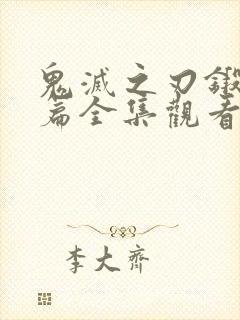 鬼滅之刃鍛
篇全集觀看
李大齊